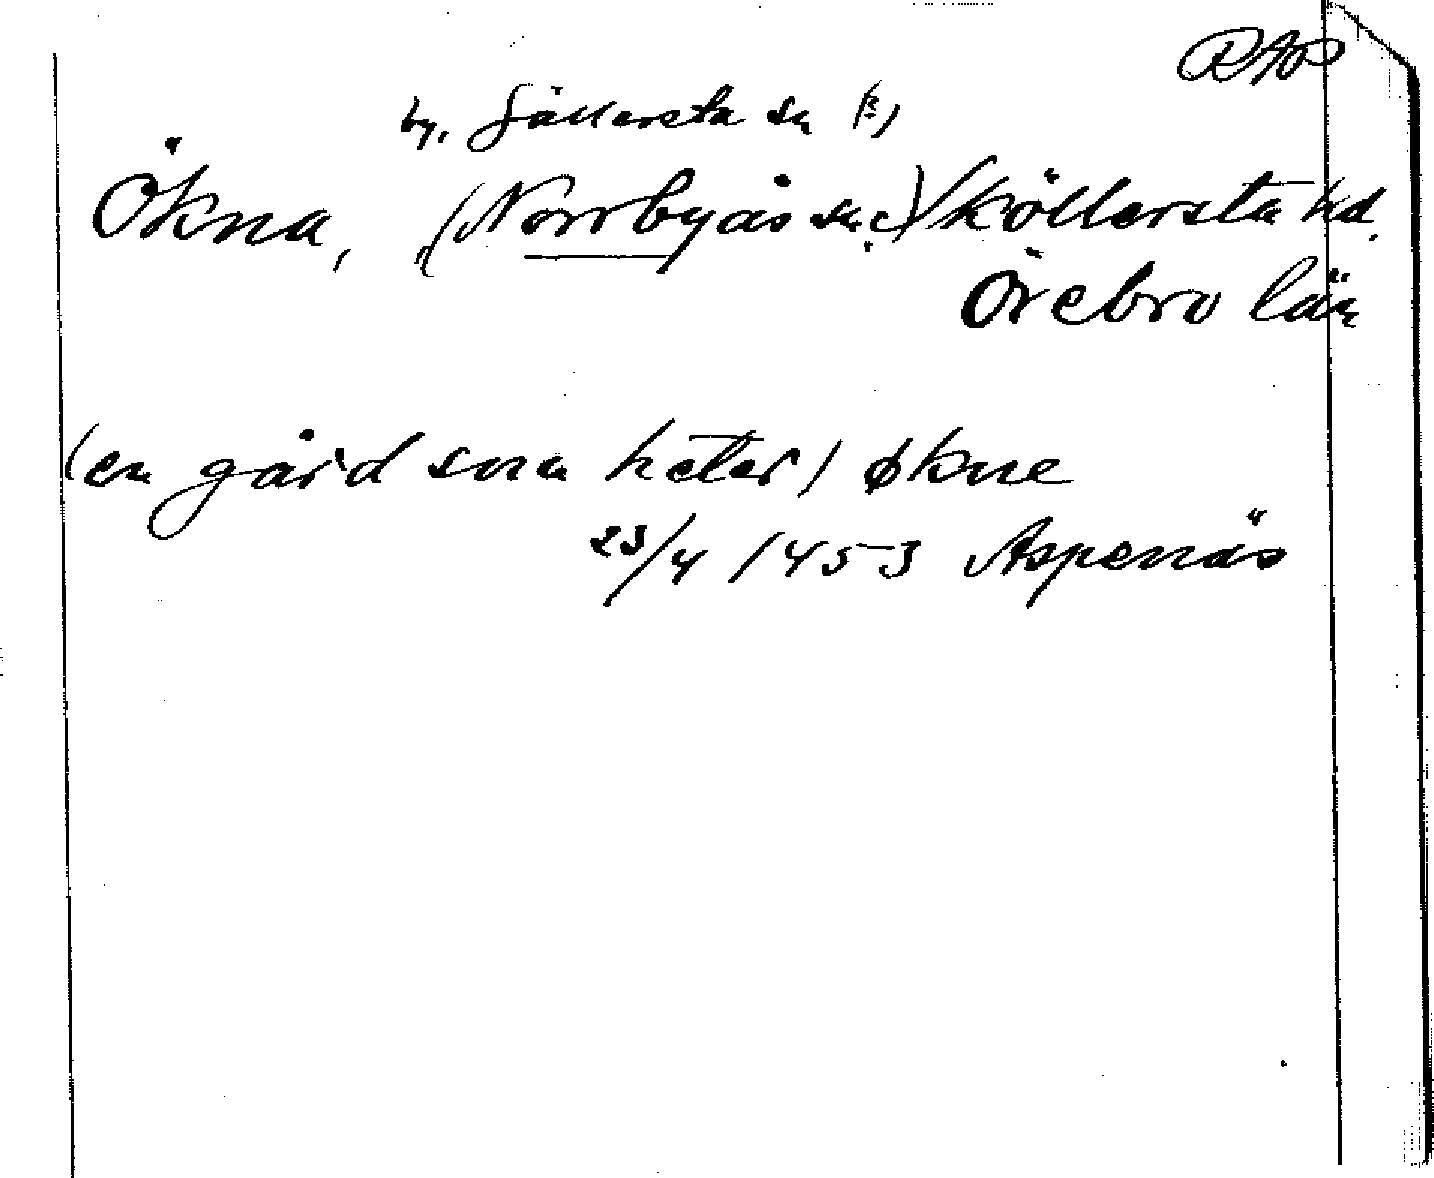 RAP
by, Gällersta sn (?)
Ökna, (Norrbyås sn.) Köllersta hd.
Örebro län
(en gård som heter) økne
23/4 1453 Aspenäs